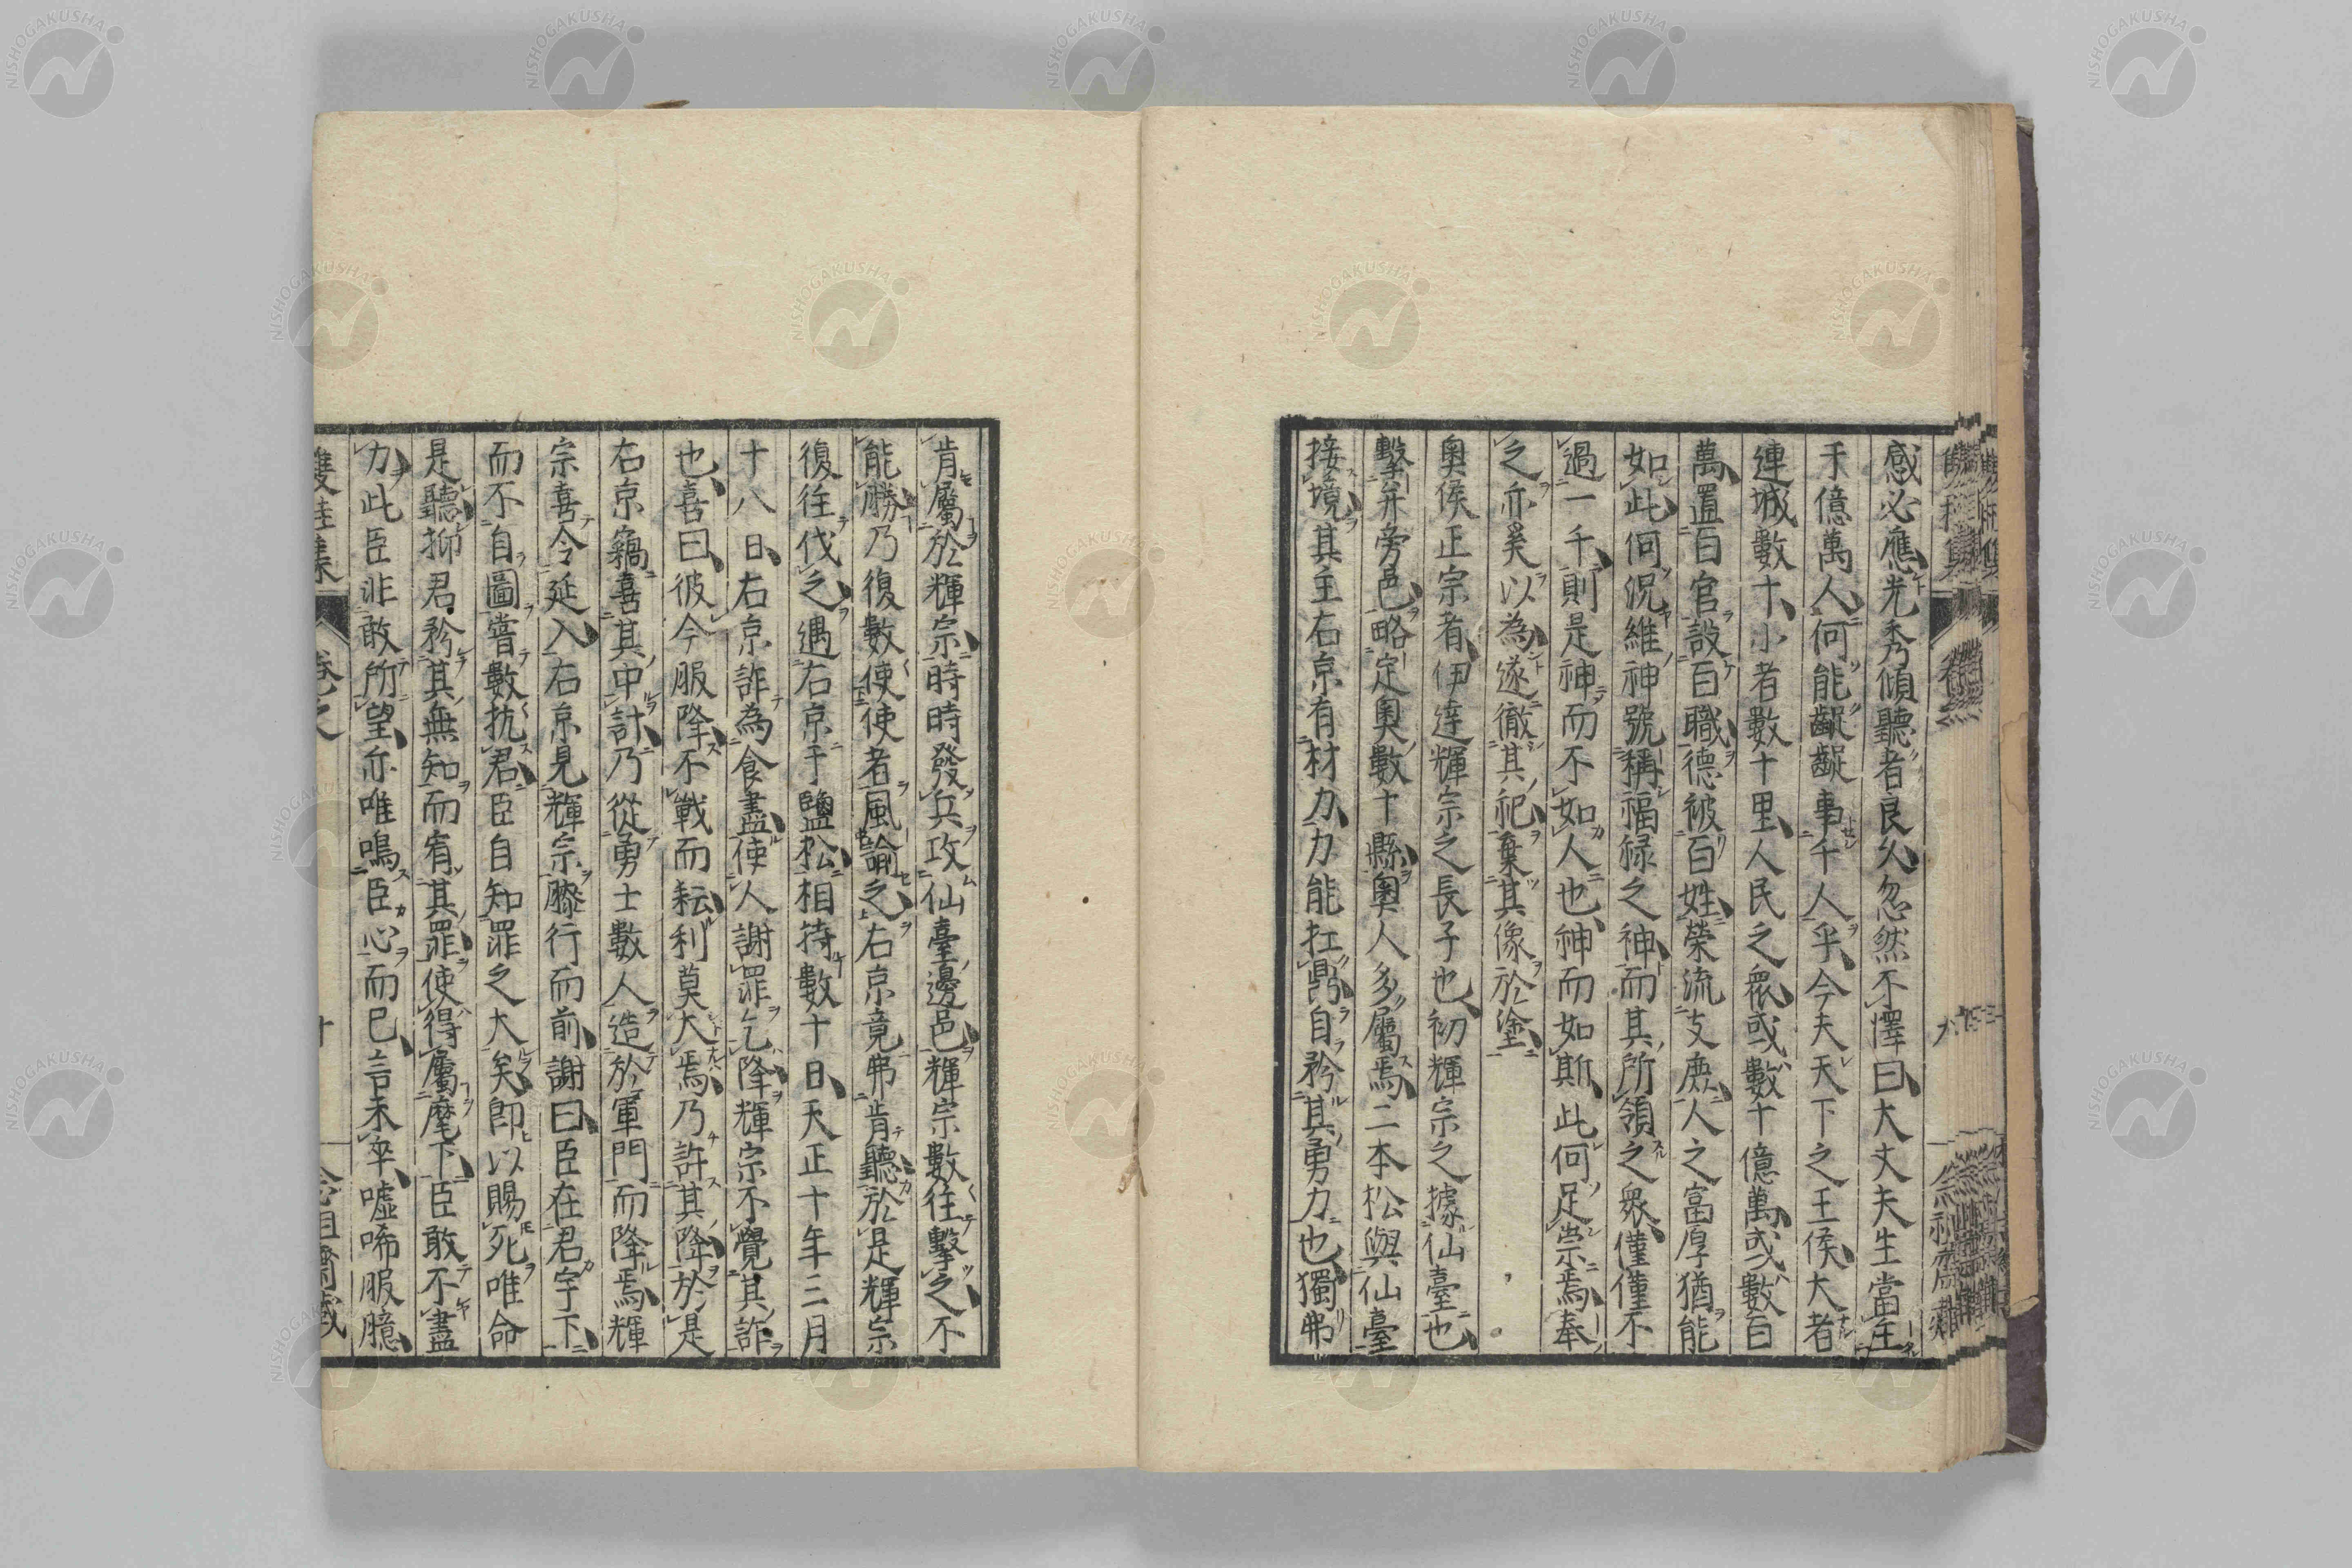 感必應光秀傾聽者良久忽然不懌曰大丈夫生當主
于億萬人何能齪齪事千人乎今夫天下之王侯大者
連城數十小者數十里人民之衆或數十億萬或數百
萬置百官設百職德被百姓榮流支庶人之富厚猶能
如此何況維神號稱福祿之神而其所領之衆僅僅不
過一千則是神而不如人也神而如斯此何足崇焉奉
之亦奚以為遂徹其祀棄其像於塗
奧侯正宗者伊達輝宗之長子也初輝宗之據仙臺也
擊并旁邑略定奧數十縣奧人多屬焉二本松與仙臺
接境其主右京有材力力能扛鼎自矜其勇力也獨弗
肯屬於輝宗時時發兵攻仙臺邊邑輝宗數往擊之不
能勝乃復數使使者風諭之右京竟弗肯聽於是輝宗
復往伐之遇右京于鹽松相持數十日天正十年三月
十八日右京詐為食盡使人謝罪乞降輝宗不覺其詐
也喜曰彼今服降不戰而耘利莫大焉乃許其降於是
右京竊喜其中計乃從勇士數人造於軍門而降焉輝
宗喜令延入右京見輝宗膝行而前謝曰臣在君宇下
而不自圖嘗數抗君臣自知罪之大矣卽以賜死唯命
是聽抑君矜其無知而宥其罪使得屬麾下臣敢不盡
力此臣非敢所望亦唯鳴臣心而已言未卒噓唏服臆
雙桂集